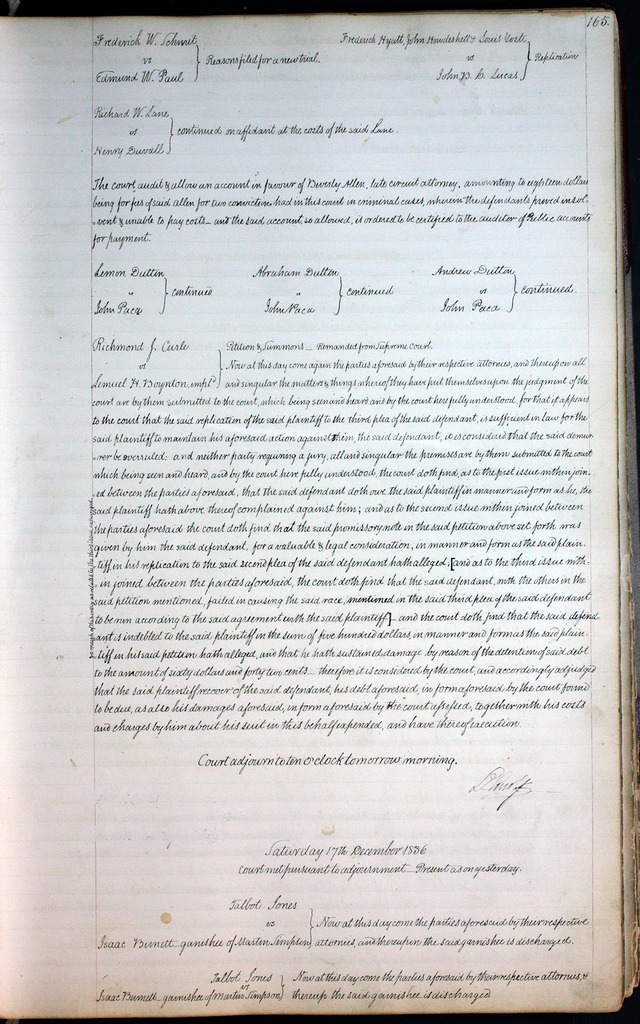 165.
Frederick W. Schmit
vs
Edmund W. Paul
Reasons filed for a new trial.
Frederick Hyatt, John Howdeshell &
vs
John B. C. Lucas
Replication
Richard W. Lane
vs
Henry Duvall
continued on affidavit at the costs of the said Lane.
The court audit & allow an account in favour of Beverly Allen, late circuit attorney, amounting to eighteen dollars
being for fees of said Allen for two convictions had in this court in criminal cases, wherein the defendants proved insol
-vent & unable to pay costs_ and the said account, so allowed, is ordered to be certified to the auditor of Public accounts
for payment.
Lemon Dutton
"
John Paca
continued
Abraham Dutton
"
John Paca
continued
Andrew Dutton
vs
John Paca
continued.
Richmond J. Curle
vs
Lemuel H. Boynton, impld
Petition & Summons_ Remanded from Supreme Court.
Now at this day come again the parties aforesaid by their respective attornies, and thereupon all
and singular the matters & things whereof they have put themselves upon the judgment of the
court are by them submitted to the court, which being seen and heard and by the court here fully understood, for that it appears
to the court that the said replication of the said plaintiff to the third plea of the said defendant, is sufficient in law for the
said plaintiff to maintain his aforesaid action against him, the said defendant, it is considered that the said demur
rer be overruled: and neither party requiring a jury, all and singular the premises are by them submitted to the court
which being seen and heard, and by the court here fully understood, the court doth find, as to the first issue within join
-ed between the parties aforesaid, that the said defendant doth owe the said plaintiff in manner and form as he, the
said plaintiff hath above thereof complained against him; and as to the second issue within joined between
the parties aforesaid the court doth find that the said promissory note in the said petition above set forth was
given by him the said defendant, for a valuable & legal consideration, in manner and form as the said plain-
tiff in his replication to the said second plea of the said defendant hath alleged, [and as to the third issue with-
in joined between the parties aforesaid, the court doth find that the said defendant, with the others in the
said petition mentioned, failed in causing the said race, mentioned in the said third plea of the said defendant
to be run according to the said agreement with the said plaintiff]_ and the court doth find that the said defend
ant is indebted to the said plaintiff in the sum of five hundred dollars, in manner and form as the said plain-
tiff in his said petition hath alleged, and that he hath sustained damage by reason of the detention of said debt
to the amount of sixty dollars and forty two cents_ therefore it is considered by the court, and accordingly adjudged
that the said plaintiff recover of the said defendant, his debt aforesaid, in form aforesaid by the court found
to be due, as also his damages aforesaid, in form aforesaid by the court assessed, together with his costs
and charges by him about his suit in this behalf expended, and have thereof execution.
Court adjourn to ten o'clock tomorrow morning.
Saturday 17th December 1836
Court met pursuant to adjournment_ Present as on yesterday.
Talbot Jones
vs
Isaac Burnett_ garnishee of Martin Simpson
Now at this day come the parties aforesaid by their respective
attornies, and thereupon the said garnishee is discharged.
Talbot Jones
vs
Isaac Burnett_ garnishee of Martin Simpson
Now at this day come the parties aforesaid by their respective attornies, &
thereup the said garnishee is discharged